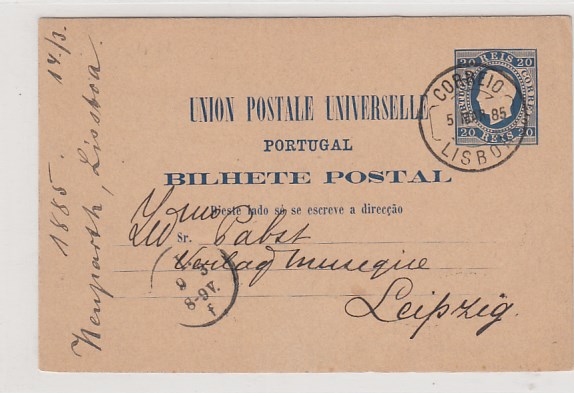 20 REIS 20
PORTUGAL CORREIO
20 REIS 20
CORREIO
5 MAR 85
LISBOA
UNION POSTALE UNIVERSELLE
PORTUGAL
BILHETE POSTAL
Dieste lado só se escreve a direcção
Sr. Pabst
Verlag musique
Leipzig.
9 3
8-9V.
f
1885. 14/3.
Neuparth, Lissboa.